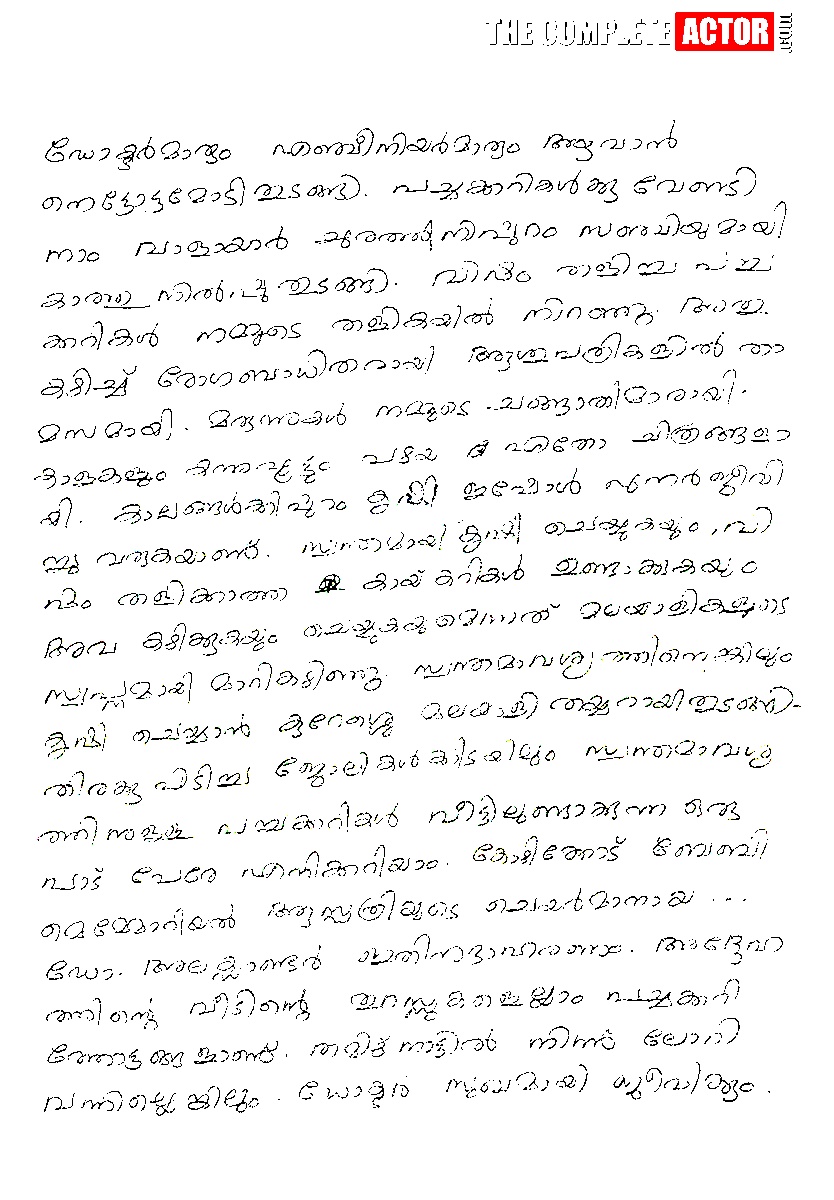 THE COMPLETE ACTOR
ഡോക്ടർമാരും എഞ്ചീനിയർമാരും ആവാൻ
നെട്ടോട്ടമോടി തുടങ്ങി. പച്ചക്കറികൾക്കു വേണ്ടി
നാം വാളായാർ ചുരത്തിനിപ്പുറം സഞ്ചിയുമായി
കാത്തു നിൽപ്പു തുടങ്ങി. വിഷം തളിച്ച പച്ച
ക്കറികൾ നമ്മുടെ തളികയിൽ നിറഞ്ഞു. അതു
കഴിച്ച് രോഗബാധിതരായി ആശുപത്രികളിൽ താ
മസമായി. മരുന്നുകൾ നമ്മുടെ ചങ്ങാതിമാരായി.
കാളകളും കന്നുപൂട്ടും പഴയ ഏതോ ചിത്രങ്ങളാ
യി. കാലങ്ങൾക്കിപ്പുറം കൃഷി ഇപ്പോൾ പുനർജ്ജീവി
ച്ചു വരുകയാണ്. സ്വന്തമായി കൃഷി ചെയ്യുകയും, വി
ഷം തളിക്കാത്ത കായ്കറികൾ ഉണ്ടാക്കുകയും
അവ കഴിക്കുകയും ചെയ്യുകയുമെന്നത് മലയാളികളുടെ
സ്വപ്നമായി മാറികഴിഞ്ഞു. സ്വന്തമാവശ്യത്തിനെങ്കിലും
കൃഷി ചെയ്യാൻ കുറേശ്ശെ മലയാളി തയ്യാറായിതുടങ്ങി-
തിരക്കു പിടിച്ച ജോലികൾക്കിടയിലും സ്വന്തമാവശ്യ
ത്തിനുള്ള പച്ചക്കറികൾ വീട്ടിലുണ്ടാക്കുന്ന ഒരു
പാട് പേരേ എനിക്കറിയാം. കോഴിക്കോട് ബേബി
മെമ്മോറിയൽ ആസ്പത്രിയുടെ ചെയർമാനായ ...
ഡോ. അലക്സാണ്ടർ അതിനുദാഹരണം. അദ്ദേഹ
ത്തിന്റെ വീടിന്റെ ടെറസ്സുകളെല്ലാം പച്ചക്കറി
ത്തോട്ടങ്ങളാണ്. തമിഴ് നാട്ടിൽ നിന്ന് ലോറി
വന്നില്ലെങ്കിലും. ഡോക്ടർ സുഖമായി ജീവിക്കും.